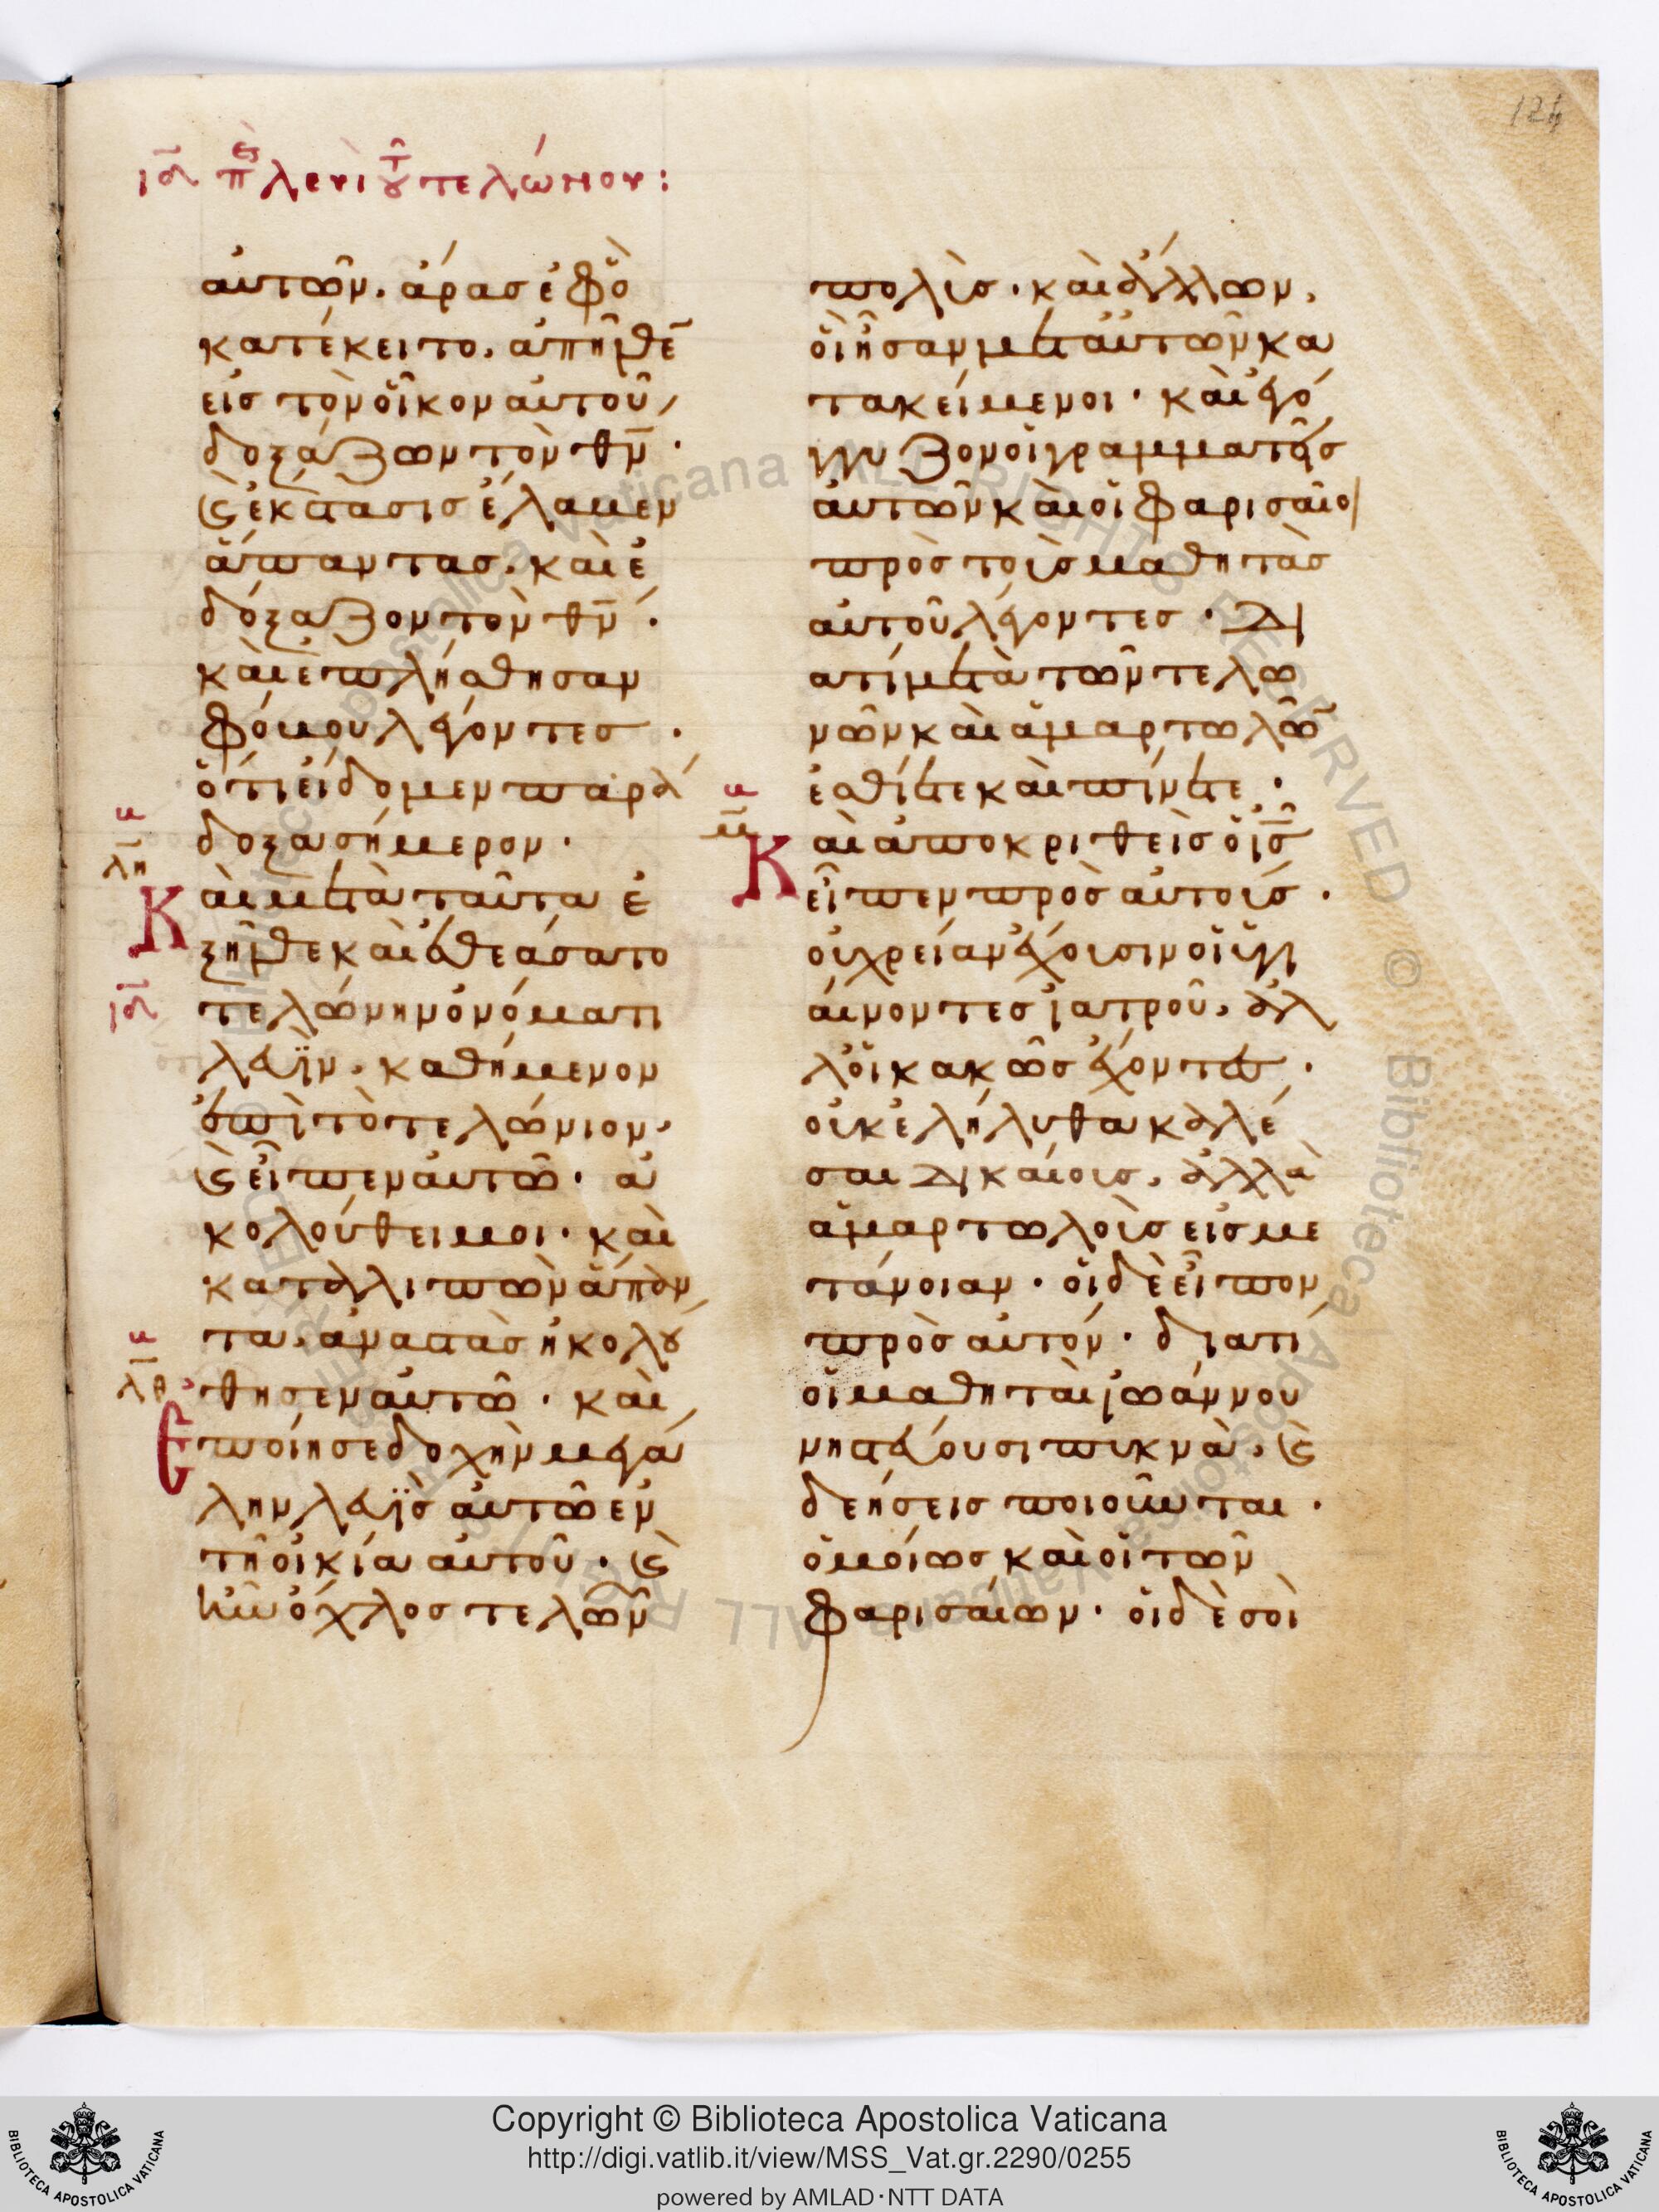 124
ιδ̄ περ λευὶ τοῦ τελώνου:
αὐτῶν. ἄρας ἐφ ὃ
κατέκειτο. ἀπῆλθε̄
εἰς τὸν οἶκον αὐτοῦ,
δοξάζων τὸν θν̄·
ϗ ἔκστασις ἔλαβεν
ἅπαντας. καὶ ἐ
δόξαζον τὸν θν̄·
καὶ ἐπλήσθησαν
φόβου λέγοντες·
ὅτι εἴδομεν παρά
δοξα σήμερον·
λη
Καὶ μετὰ ταῦτα ἐ
ξῆλθε καὶ ἐθεάσατο
ιδ̄
τελώνην ὀνόματι
λευῒν. καθήμενον
ἐπὶ τὸ τελώνιον.
ϗ εἶπεν αὐτῶ· ἀ
κολούθει μοι· καὶ
καταλιπὼν ἅπαν
τα. ἀναστὰς ἠκολού
λθ
θησεν αὐτῶ· καὶ
Ἐποίησε δοχὴν μεγά
λην λευῒς αὐτῶ ἐν
τῆ οἰκία αὐτοῦ· ϗ
ἦν ὄχλος τελωνῶν
πολὺς· καὶ ἄλλων.
οἳ ἦσαν μετ αὐτῶν κα
τακείμενοι· καὶ ἐγό
γγυζον οἱ γραμματεῖς
αὐτῶν καὶ οἱ φαρισαῖοι
πρὸς τοὺς μαθητὰς
αὐτοῦ λέγοντες· δι
ατί μετὰ τῶν τελω
νῶν καὶ ἁμαρτωλῶ̄
ἐσθίετε καὶ πίνετε·
μ̄
Καὶ ἀποκριθεὶς ὁ ις̄
εἶπεν πρὸς αὐτούς·
οὐ χρείαν ἔχουσιν οἱ ὑγι
αίνοντες ἰατροῦ. ἀλ
λ οἱ κακῶς ἔχοντες·
οὐκ ἐλήλυθα καλέ
σαι δικαίους. ἀλλὰ
ἁμαρτωλοὺς εἰς με
τάνοιαν· οἱ δὲ εἶπον
πρὸς αὐτόν· διατί
οἱ μαθηταὶ ἰωάννου
νηστεύουσι πυκνὰ. ϗ
δεήσεις ποιοῦνται·
ὁμοίως καὶ οἱ τῶν
φαρισαίων· οἱ δὲ σοὶ
Copyright © Biblioteca Apostolica Vaticana
http://digi.vatlib.it/view/MSS_Vat.gr.2290/0255
powered by AMLAD·NTT DATA
BIBLIOTECA APOSTOLICA VATICANA
BIBLIOTECA APOSTOLICA VATICANA